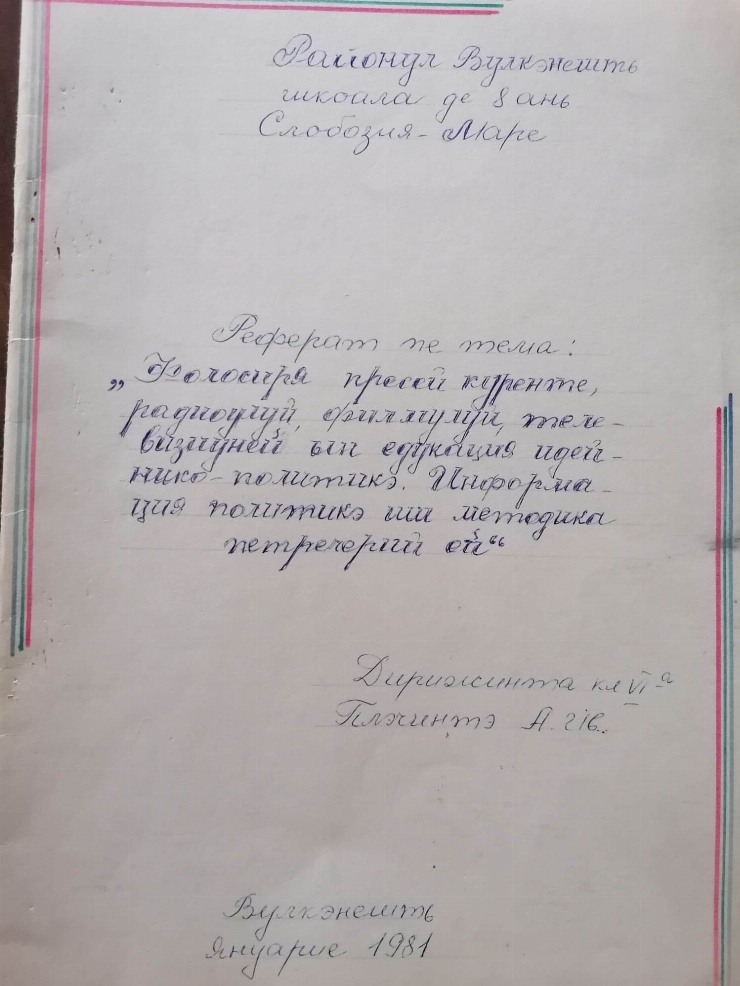 Районул Вулкэнешть
школа де 8 ань
Слобозия-Маре
Реферат пе тема:
„Фолосиря пресей куренте,
радиоулуй, филмулуй, теле-
визиуней ын едукация идей-
нико-политикэ. Информа-
ция политикэ ши методика
петречерий ей“
Дирижинта кл VI-а
Плэчинтэ А.
Вулкэнешть
Януарие 1981